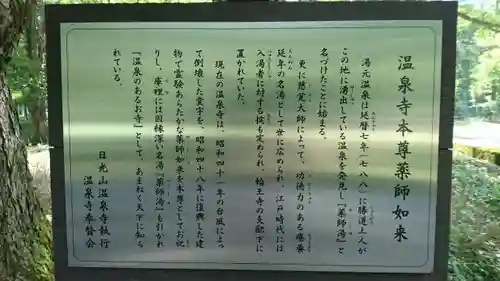 温泉寺本尊薬師如来
湯元温泉は延暦七年(七八八)に勝道上人が
この地に湧出している温泉を発見し『薬師湯』と
名づけたことに始まる。
更に慈覚大師によって、功徳力のある療養
延年の名湯として世に広められ、江戸時代には
入湯者に対する掟も定められ、輪王寺の支配下に
置かれていた。
現在の温泉寺は、昭和四十一年の台風によっ
て倒壊した堂宇を、昭和四十八年に復興した建
物で霊験あらたかな薬師如来を本尊としてお祀
りし、庫裡には因縁深い名湯『薬師湯』も引かれ
『温泉のあるお寺』として、あまねく天下に知ら
れている。
日光山温泉寺執行
温泉寺奉賛会